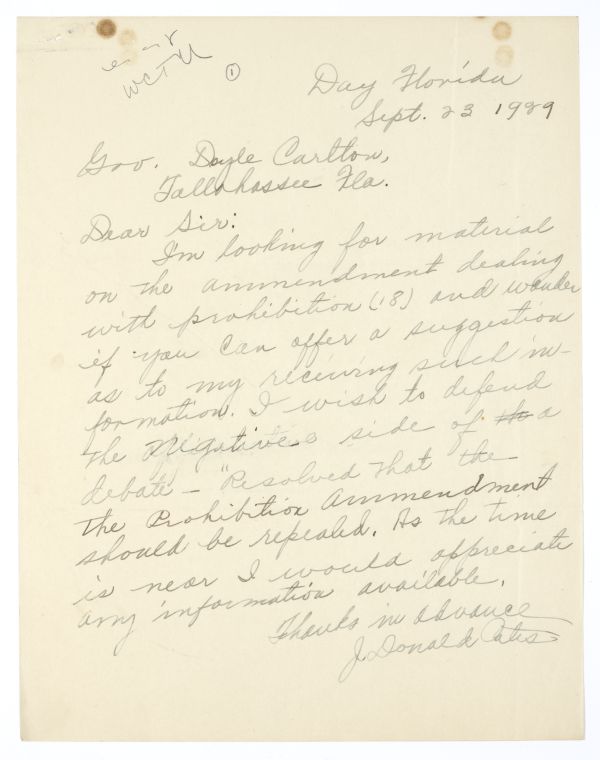 WCTU
①
Day Florida
Sept. 23 1929
Gov. Doyle Carlton,
Tallahassee Fla.
Dear Sir:
I'm looking for material
on the ammendment dealing
with prohibition (18) and wonder
if you can offer a suggestion
as to my receiving such in-
formation. I wish to defend
the negative side of a
debate – "Resolved that the
the Prohibition Ammendment
should be repealed. As the time
is near I would appreciate
any information available.
Thanks in advance
J. Donald